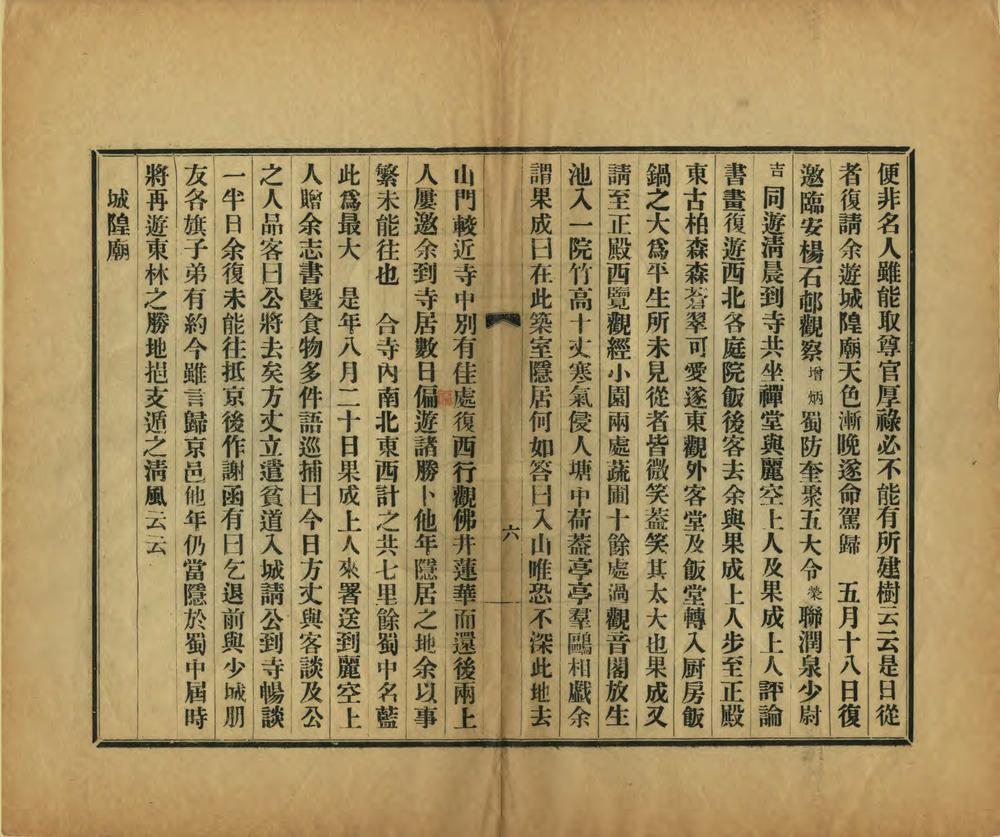 便非名人雖能取尊官厚祿必不能有所建樹云云是日從
者復請余遊城隍廟天色漸晚遂命駕歸　五月十八日復
邀臨安楊石邨觀察增炳蜀防奎聚五大令榮聯潤泉少尉
吉同遊清晨到寺共坐禪堂與麗空上人及果成上人評論
書畫復遊西北各庭院飯後客去余與果成上人步至正殿
東古柏森森蒼翠可愛遂東觀外客堂及飯堂轉入厨房飯
鍋之大爲平生所未見從者皆微笑蓋笑其太大也果成又
請至正殿西覽觀經小園兩處蔬圃十餘處過觀音閣放生
池入一院竹高十丈寒氣侵人塘中荷蓋亭亭羣鷗相戲余
謂果成曰在此築室隱居何如答曰入山唯恐不深此地去
六
山門較近寺中別有佳處復西行觀佛井蓮華而還後兩上
人屢邀余到寺居數日偏遊諸勝卜他年隱居之地余以事
繁未能往也　合寺內南北東西計之共七里餘蜀中名藍
此爲最大　是年八月二十日果成上人來署送到麗空上
人贈余志書暨食物多件語巡捕曰今日方丈與客談及公
之人品客曰公將去矣方丈立遣貧道入城請公到寺暢談
一半日余復未能往抵京後作謝函有曰乞退前與少城朋
友各旗子弟有約今雖言歸京邑他年仍當隱於蜀中屆時
將再遊東林之勝地挹支遁之清風云云
城隍廟